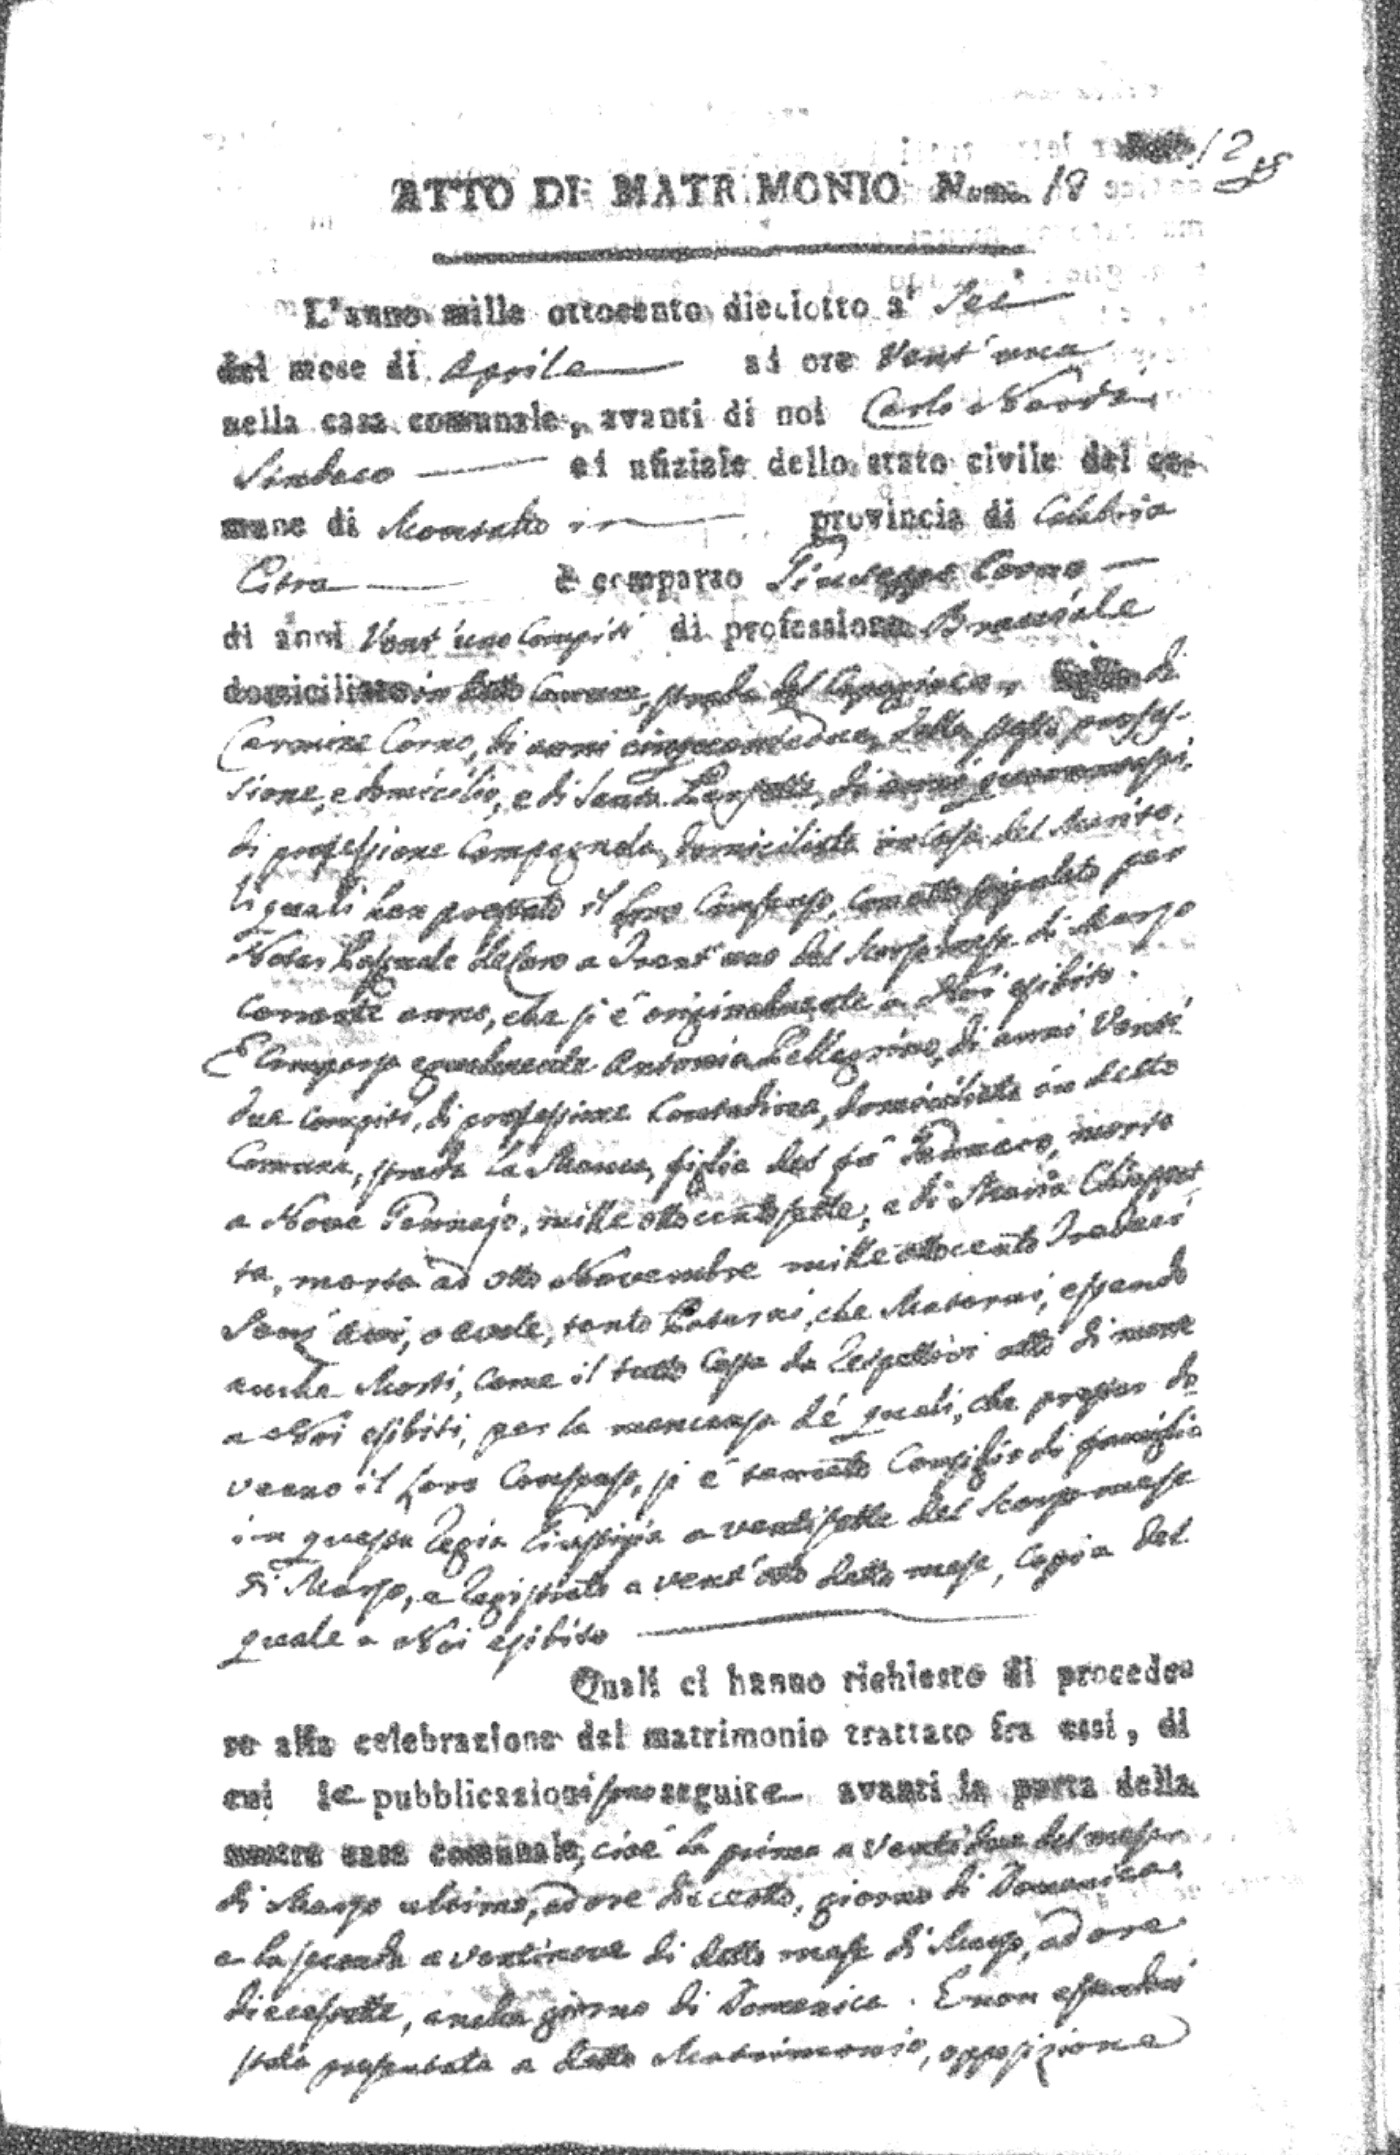 12
ATTO DI MATRIMONIO Num. 18
L'anno mille ottocento dieciotto a' Sei
del mese di Aprile ad ore Vent'una
nella casa comunale, avanti di noi Carlo Nardi
Sindaco ed ufiziale dello stato civile del co-
mune di Montalto in provincia di Calabria
Citra è comparso Giuseppe Corno
di anni Vent'uno Compiti di professione Bracciale
domiciliato in detto Comune, strada del di
Carmine Corno, di anni cinquantadue, della stessa profes-
sione, e domicilio, e di Santa Perfetta, di anni
di professione Campagnola, domiciliata in Casa del Marito,
li quali han prestato il loro Consenso, con atto stipulato per
Notar Pasquale deCaro a Trent'uno del scorso mese di Marzo
corrente anno, che si è originalmente a Noi esibito.
E comparsa egualmente Antonia Pellegrino, di anni Venti
due compiti, di professione Contadina, domiciliata in detto
Comune, strada la Manca, figlia del fù Gennaro, morto
a Nove Gennajo, mille ottocentosette, e di Maria Chiappet-
ta, morta ad otto Novembre mille ottocento Tredeci
Senz'avi, o avole, tanto Paterni, che Materni, essendo
anche Morti, come il tutto costa da respettivi atti di morte
a Noi esibiti, per la mancanza de' quali, che prestar do-
veano il loro Consenso, si è tenuto Consiglio di famiglia
in questa Regia Giustizia a ventisette del scorso mese
di Marzo, e registrato a vent'otto detto mese, Copia del
quale a Noi esibito
Quali ci hanno richiesto di procede-
re alla celebrazione del matrimonio trattato fra essi, di
cui le pubblicazioni sono seguite avanti la porta della
nostra casa comunale, cioè la prima a ventidue del mese
di Marzo ultimo, ad ore diecotto, giorno di Domenica,
e la seconda a ventinove di detto mese di Marzo, ad ore
diecesette, anche giorno di Domenica. E non essendosi
stata presentata a detto Matrimonio, opposizione